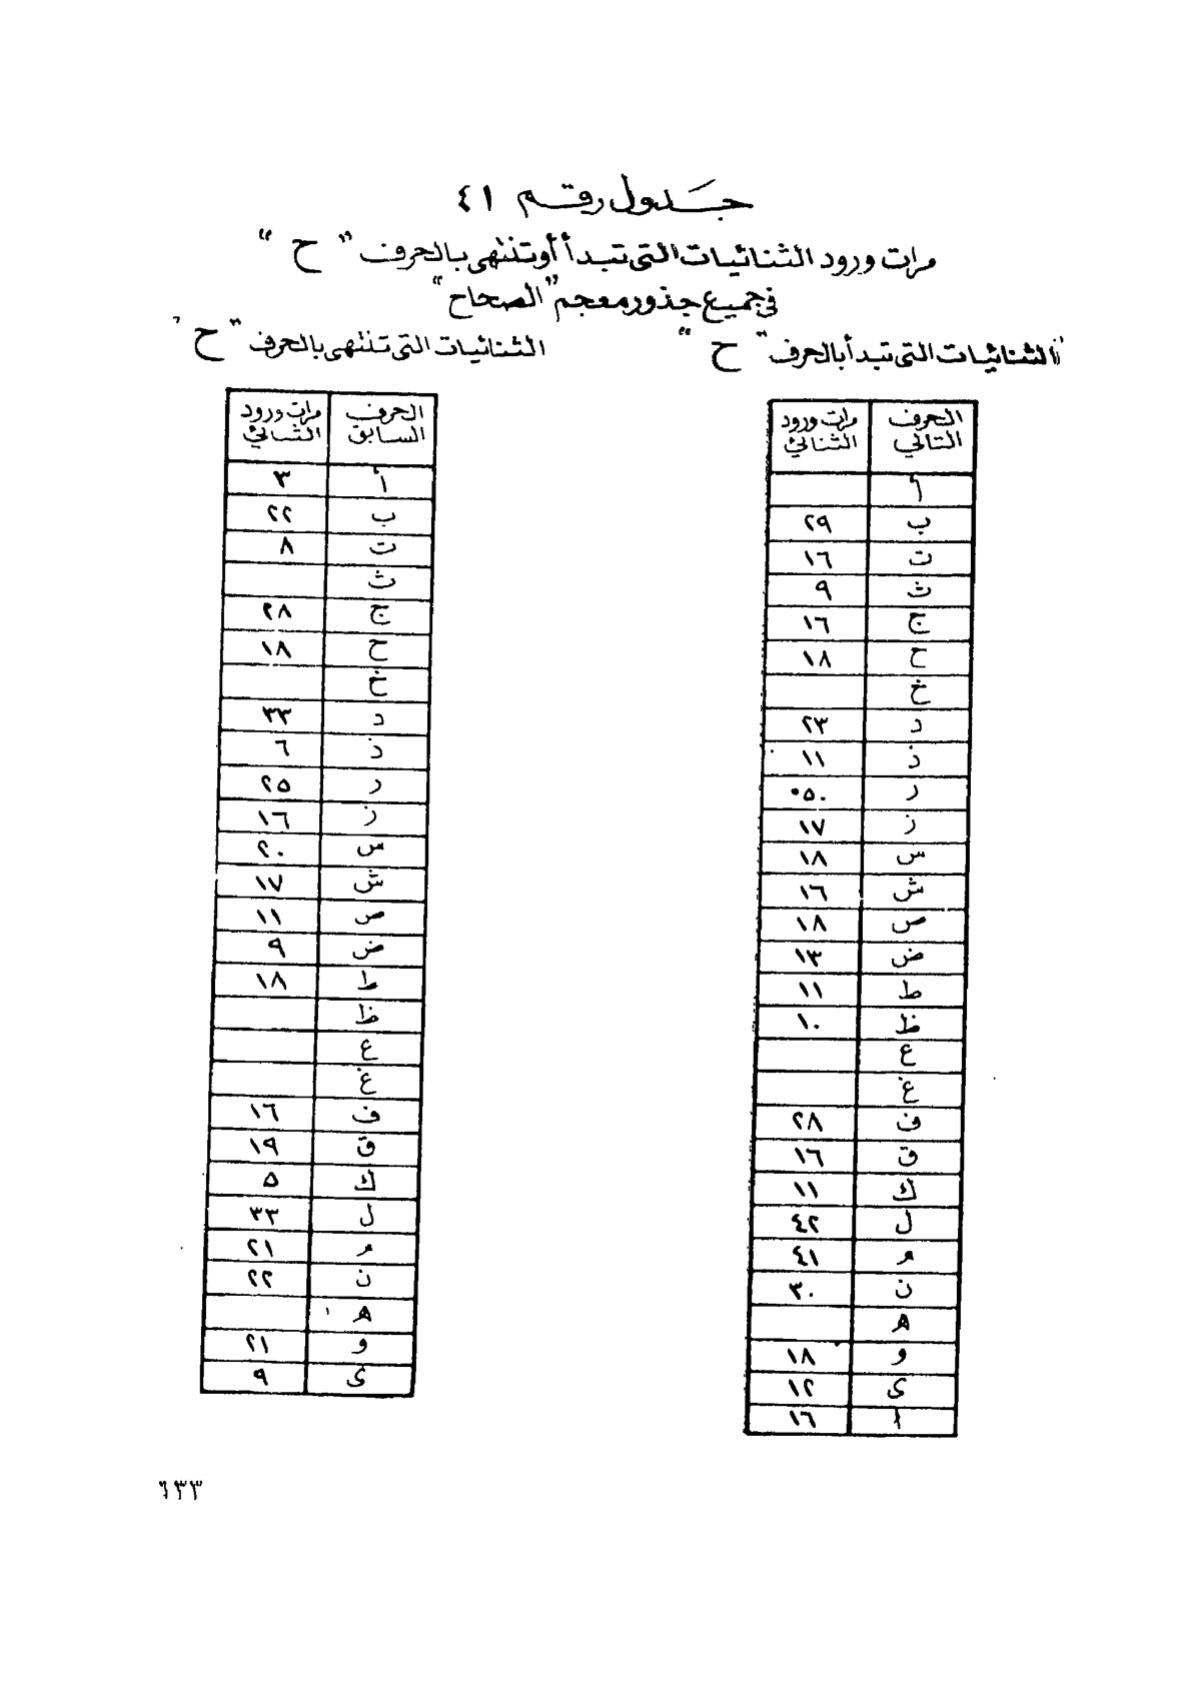 جدول رقم ٤١
مرات ورود الثنائيات التى تبدأ أو تنتهى بالحرف " ح "
فى جميع جذور معجم "الصحاح"
الثنائيات التى تبدأ بالحرف " ح "
الحرف التالي	مرات ورود الثنائي
أ
ب	٢٩
ت	١٦
ث	٩
ج	١٦
ح	١٨
خ
د	٢٣
ذ	١١
ر	٥٠
ز	١٧
س	١٨
ش	١٦
ص	١٨
ض	١٣
ط	١١
ظ	١٠
ع
غ
ف	٢٨
ق	١٦
ك	١١
ل	٤٢
م	٤١
ن	٣٠
ه
و	١٨
ى	١٢
ا	١٦
الثنائيات التى تنتهى بالحرف " ح "
الحرف السابق	مرات ورود الثنائي
أ	٣
ب	٢٢
ت	٨
ث
ج	٢٨
ح	١٨
خ
د	٣٣
ذ	٦
ر	٢٥
ز	١٦
س	٢٠
ش	١٧
ص	١١
ض	٩
ط	١٨
ظ
ع
غ
ف	١٦
ق	١٩
ك	٥
ل	٣٣
م	٢١
ن	٢٢
ه
و	٢١
ى	٩
٦٣٣